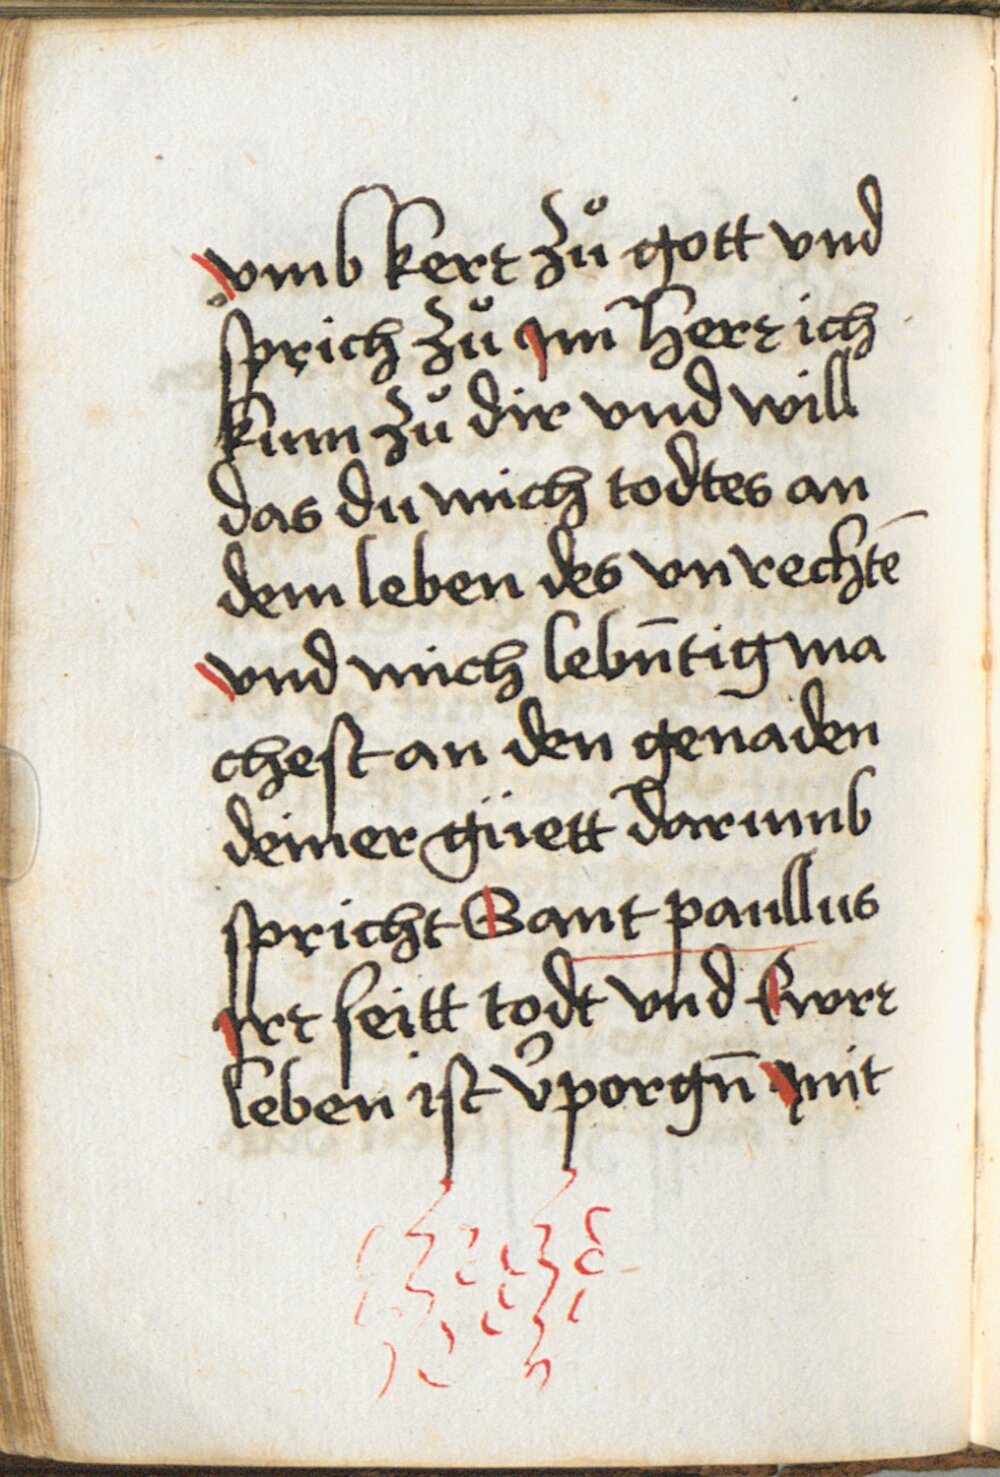 vmb kert zuͦ gott vnd
sprich zuͦ jm̄ herr ich
kum zuͦ dir vnd will
das du mich todtes an
dem leben des vnrechtē
vnd mich lebn̄tig ma
chest an den genaden
deiner güett darumb
spricht Sant paullus
Irr seitt todt vnd Ewr
leben ist v̉porgn̄ mit